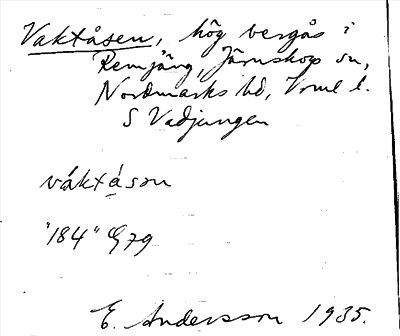 Vaktåsen, hög bergås i
Remjäng, Järnskog sn,
Nordmarks hd, Vrml l.
S Vadjungen
váktåson
"184" G79
E. Andersson 1935.